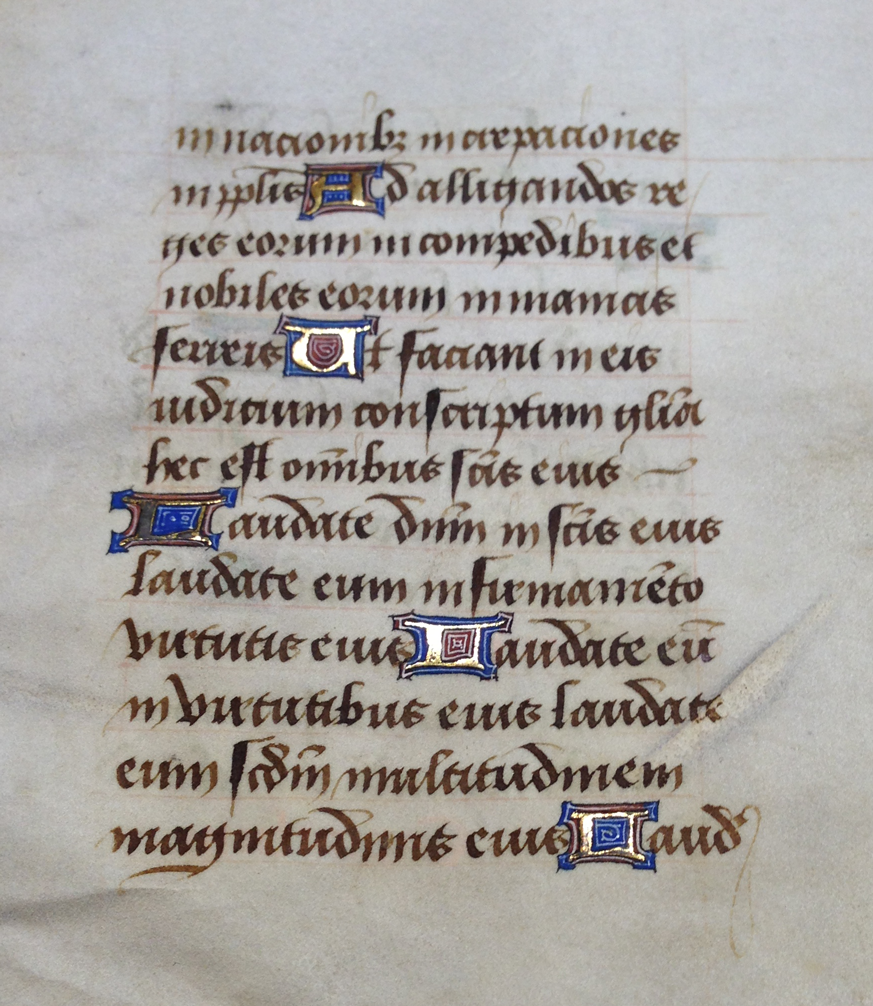 in nacionibꝫ increpaciones
in pp̄lis Ad alligandos re
ges eorum in compedibus et
nobiles eorum in manicas
ferreis Ut faciant in eis
iudicium conscriptum gl̄ia
hec est om̄ibus sc̄is eius
Laudate dn̄m in sc̄is eius
laudate eum in firmamēto
virtutis eius Laudate eū
in virtutibus eius laudate
eum scd̄m multitudinem
magnitudinis eius Laud